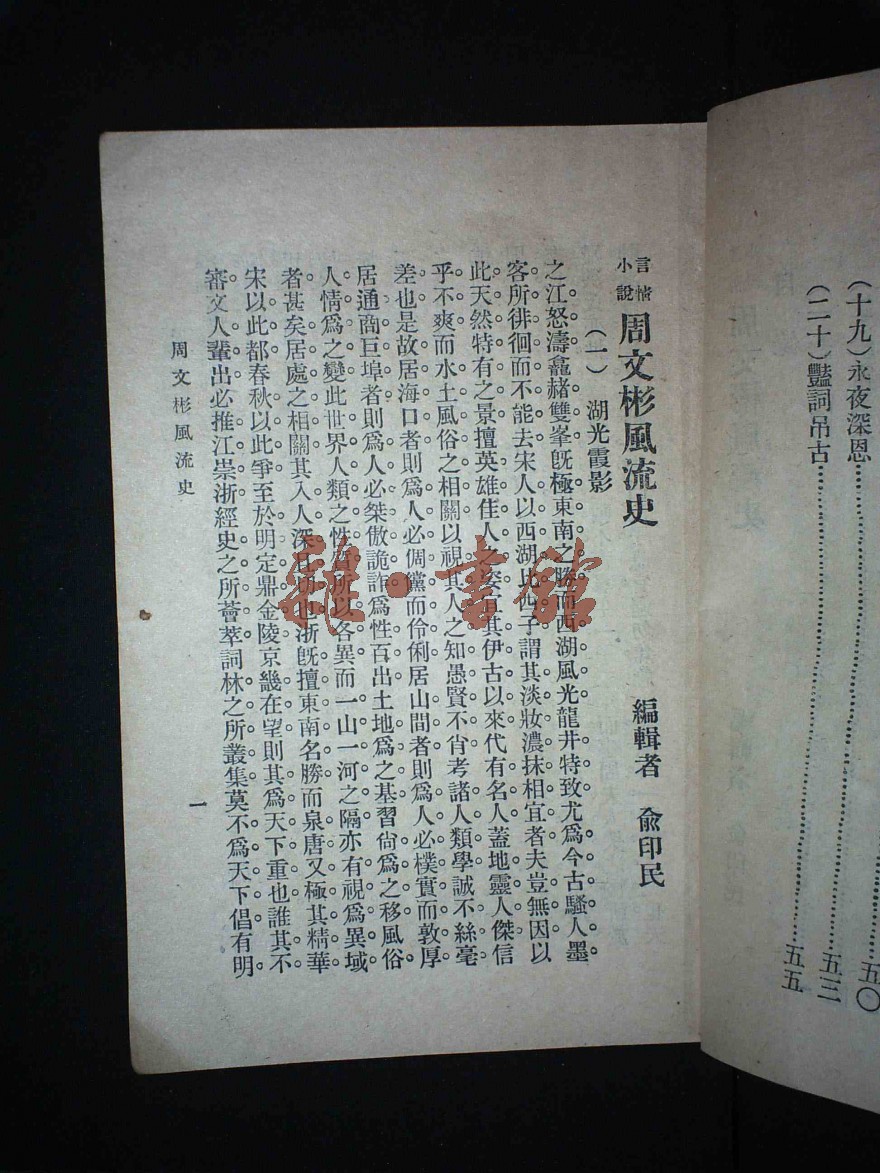 (十九)永夜深恩……五〇
(二十)豔詞吊古……五三
五五
言情小說
周文彬風流史
編輯者 俞印民
(一) 湖光霞影
之江怒濤龕赭雙峯旣極東南之勝而西湖風光龍井特致尤爲今古騷人墨
客所徘徊而不能去宋人以西湖比西子謂其淡妝濃抹相宜者夫豈無因以
此天然特有之景擅英雄佳人之姿宜其伊古以來代有名人蓋地靈人傑信
乎不爽而水土風俗之相關以視其人之知愚賢不肖考諸人類學誠不絲毫
差也是故居海口者則爲人必倜儻而伶俐居山間者則爲人必樸實而敦厚
居通商巨埠者則爲人必桀傲詭詐爲性百出土地爲之基習尙爲之移風俗
人情爲之變此世界人類之性質所以各異而一山一河之隔亦有視爲異域
者甚矣居處之相關其入人深且切也浙旣擅東南名勝而泉唐又極其精華
宋以此都春秋以此爭至於明定鼎金陵京畿在望則其爲天下重也誰其不
審文人輩出必推江崇浙經史之所薈萃詞林之所叢集莫不爲天下倡有明
周文彬風流史
一
雜·書館